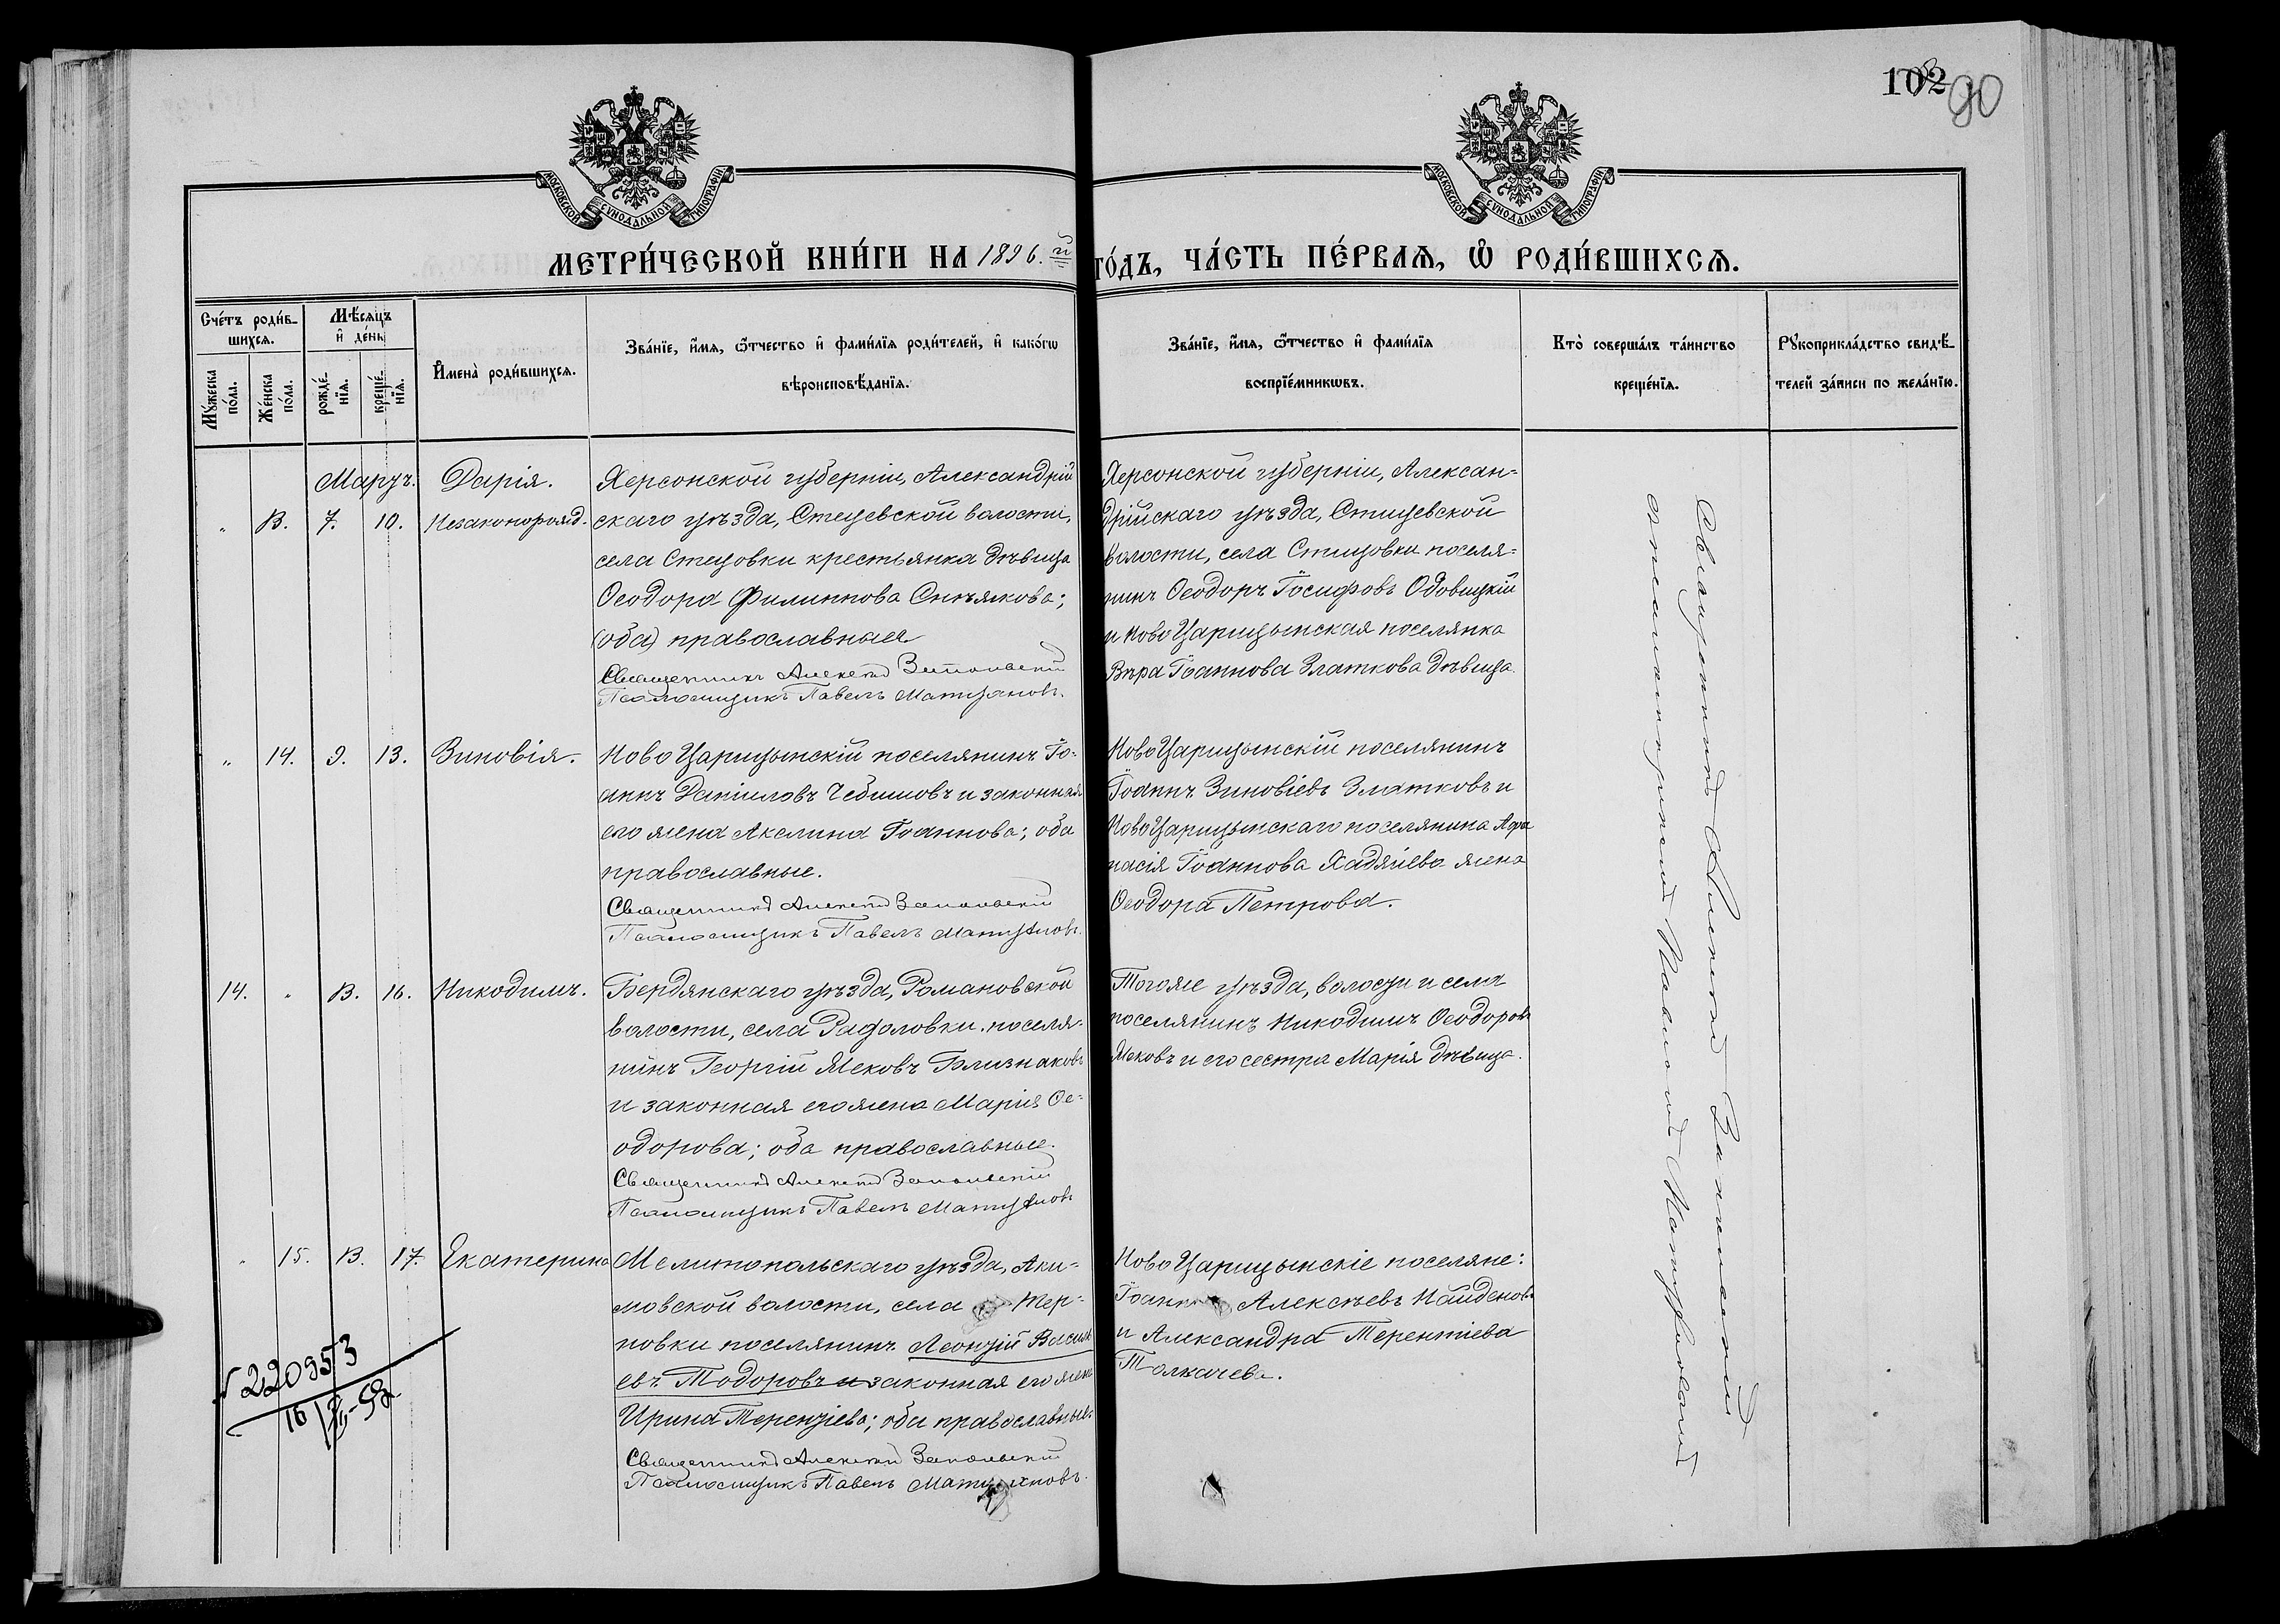 102
90
МОСКОВСКОЙ СѴНОДАЛЬНОЙ ТИПОГРАФІИ
МОСКОВСКОЙ СѴНОДАЛЬНОЙ ТИПОГРАФІИ
МЕТРИ́ЧЕСКОЙ КНИ́ГИ НА 1896.й
ГО́ДЪ, ЧА́СТЬ ПЕ́РВАѦ, Ѡ҆ РОДИ́ВШИХСѦ.
Сче́тъ роди́в-
шихсѧ.
Мѹ́жеска по́ла.
Же́нска по́ла.
Мѣ́сѧцъ
и҆ де́нь
рожде́-
нїѧ.
креще́-
нїѧ.
И҆мена̀ роди́вшихсѧ.
Зва́нїе, и҆́мѧ, ѻ҆́тчество и҆ фами́лїѧ роди́телей, и҆ како́гѡ
вѣроисповѣ́данїѧ.
Зва́нїе, и҆́мѧ, ѻ҆́тчество и҆ фами́лїѧ
воспрїе́мникѡвъ.
Кто̀ соверша́лъ та́инство
креще́нїѧ.
Рѹкоприкла́дство свидѣ́-
телей за́писи по жела́нїю.
Мартъ.
" 13. 7. 10.
Дарія.
Незаконорожд.
Херсонской губерніи, Александрій
скаго уѣзда, Стецевской волости,
села Стецовки крестьянка дѣвица
Ѳеодора Филиппова Снѣжкова;
(оба) православныя
Священникъ Алексій
Псаломщикъ Павелъ Матуановъ.
Херсонской губерніи, Алексан=
дрійскаго уѣзда, Стицевской
волости, села Стицовки поселя=
нинъ Ѳеодоръ Іосифовъ Одовицкій
и НовоЦарицынская поселянка
Вѣра Іоаннова Златкова дѣвица.
" 14. 9. 13. Зиновія.
НовоЦарицынскій поселянинъ Іо=
аннъ Даніиловъ Чебишовъ и законная
его жена Акелина Іоаннова; оба
православные.
Священникъ Алексій
Псаломщикъ Павелъ Матуановъ.
НовоЦарицынскій поселянинъ
Іоаннъ Зиновіевъ Златковъ и
НовоЦарицынскаго поселянина Аѳа
насія Іоаннова Хаджіева жена
Ѳеодора Петрова.
14. " 13. 16. Никодимъ.
Бердянскаго уѣзда, Романовской
волости, села Радоловки поселя-
нинъ Георгій Жековъ Близнаковъ
и законная его жена Марія Ѳе=
одорова; оба православные.
Священникъ Алексій
Псаломщикъ Павелъ Матуановъ
Тогоже уѣзда, волости и села
поселянинъ Никодимъ Ѳеодоровъ
Жековъ и его сестра Марія дѣвица.
" 15. 13. 17. Екатерина
Мелитопольскаго уѣзда, Аки=
мовской волости, села Тер=
новки поселянинъ Леонтій Василь
евъ Тодоровъ и законная его жена
Ирина Терентіева; оба православные.
Священникъ Алексій
Псаломщикъ Павелъ Матуановъ.
НовоЦарицынскіе поселяне:
Іоаннъ Алексѣевъ Найденовъ
и Александра Терентіева
Толкачева.
Священникъ Алексій
псаломщикомъ Павломъ
№ 220953